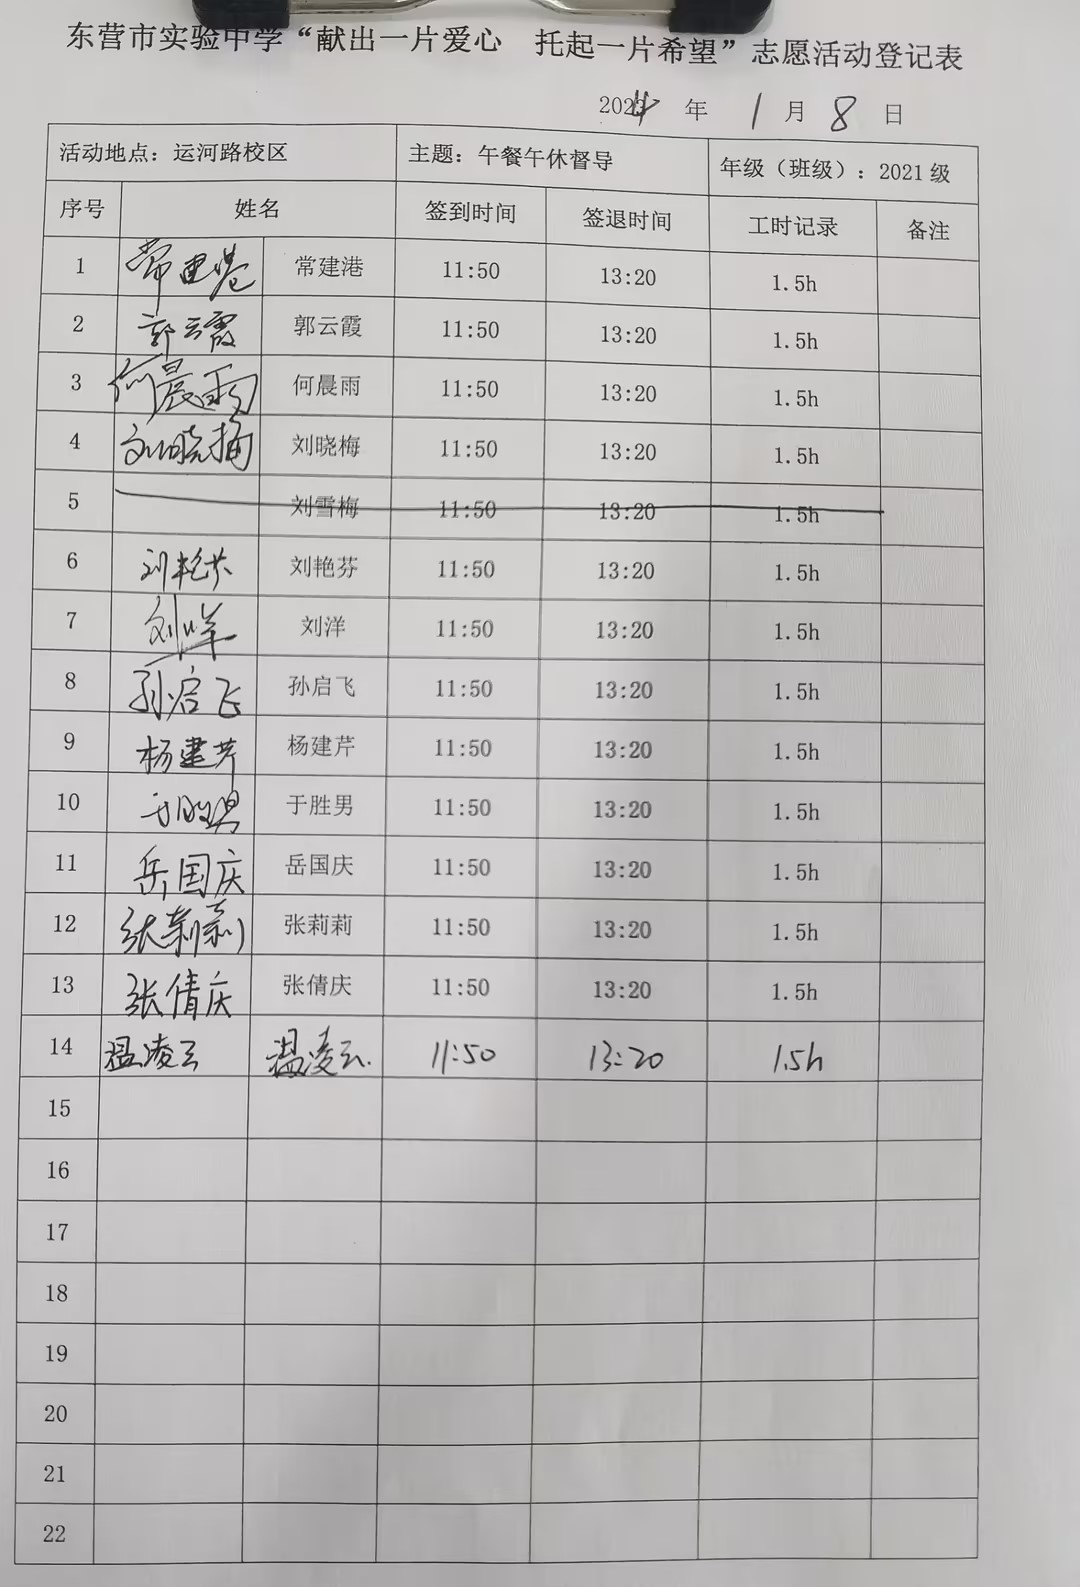 东营市实验中学“献出一片爱心　托起一片希望”志愿活动登记表
2024 年 1 月 8 日
活动地点：运河路校区 主题：午餐午休督导 年级（班级）：2021 级
序号 姓名 签到时间 签退时间 工时记录 备注
1 常建港 常建港 11:50 13:20 1.5h
2 郭云霞 郭云霞 11:50 13:20 1.5h
3 何晨雨 何晨雨 11:50 13:20 1.5h
4 刘晓梅 刘晓梅 11:50 13:20 1.5h
5 刘雪梅 11:50 13:20 1.5h
6 刘艳芬 刘艳芬 11:50 13:20 1.5h
7 刘洋 刘洋 11:50 13:20 1.5h
8 孙启飞 孙启飞 11:50 13:20 1.5h
9 杨建芹 杨建芹 11:50 13:20 1.5h
10 于胜男 于胜男 11:50 13:20 1.5h
11 岳国庆 岳国庆 11:50 13:20 1.5h
12 张莉莉 张莉莉 11:50 13:20 1.5h
13 张倩庆 张倩庆 11:50 13:20 1.5h
14 温凌云 温凌云 11:50 13:20 1.5h
15
16
17
18
19
20
21
22